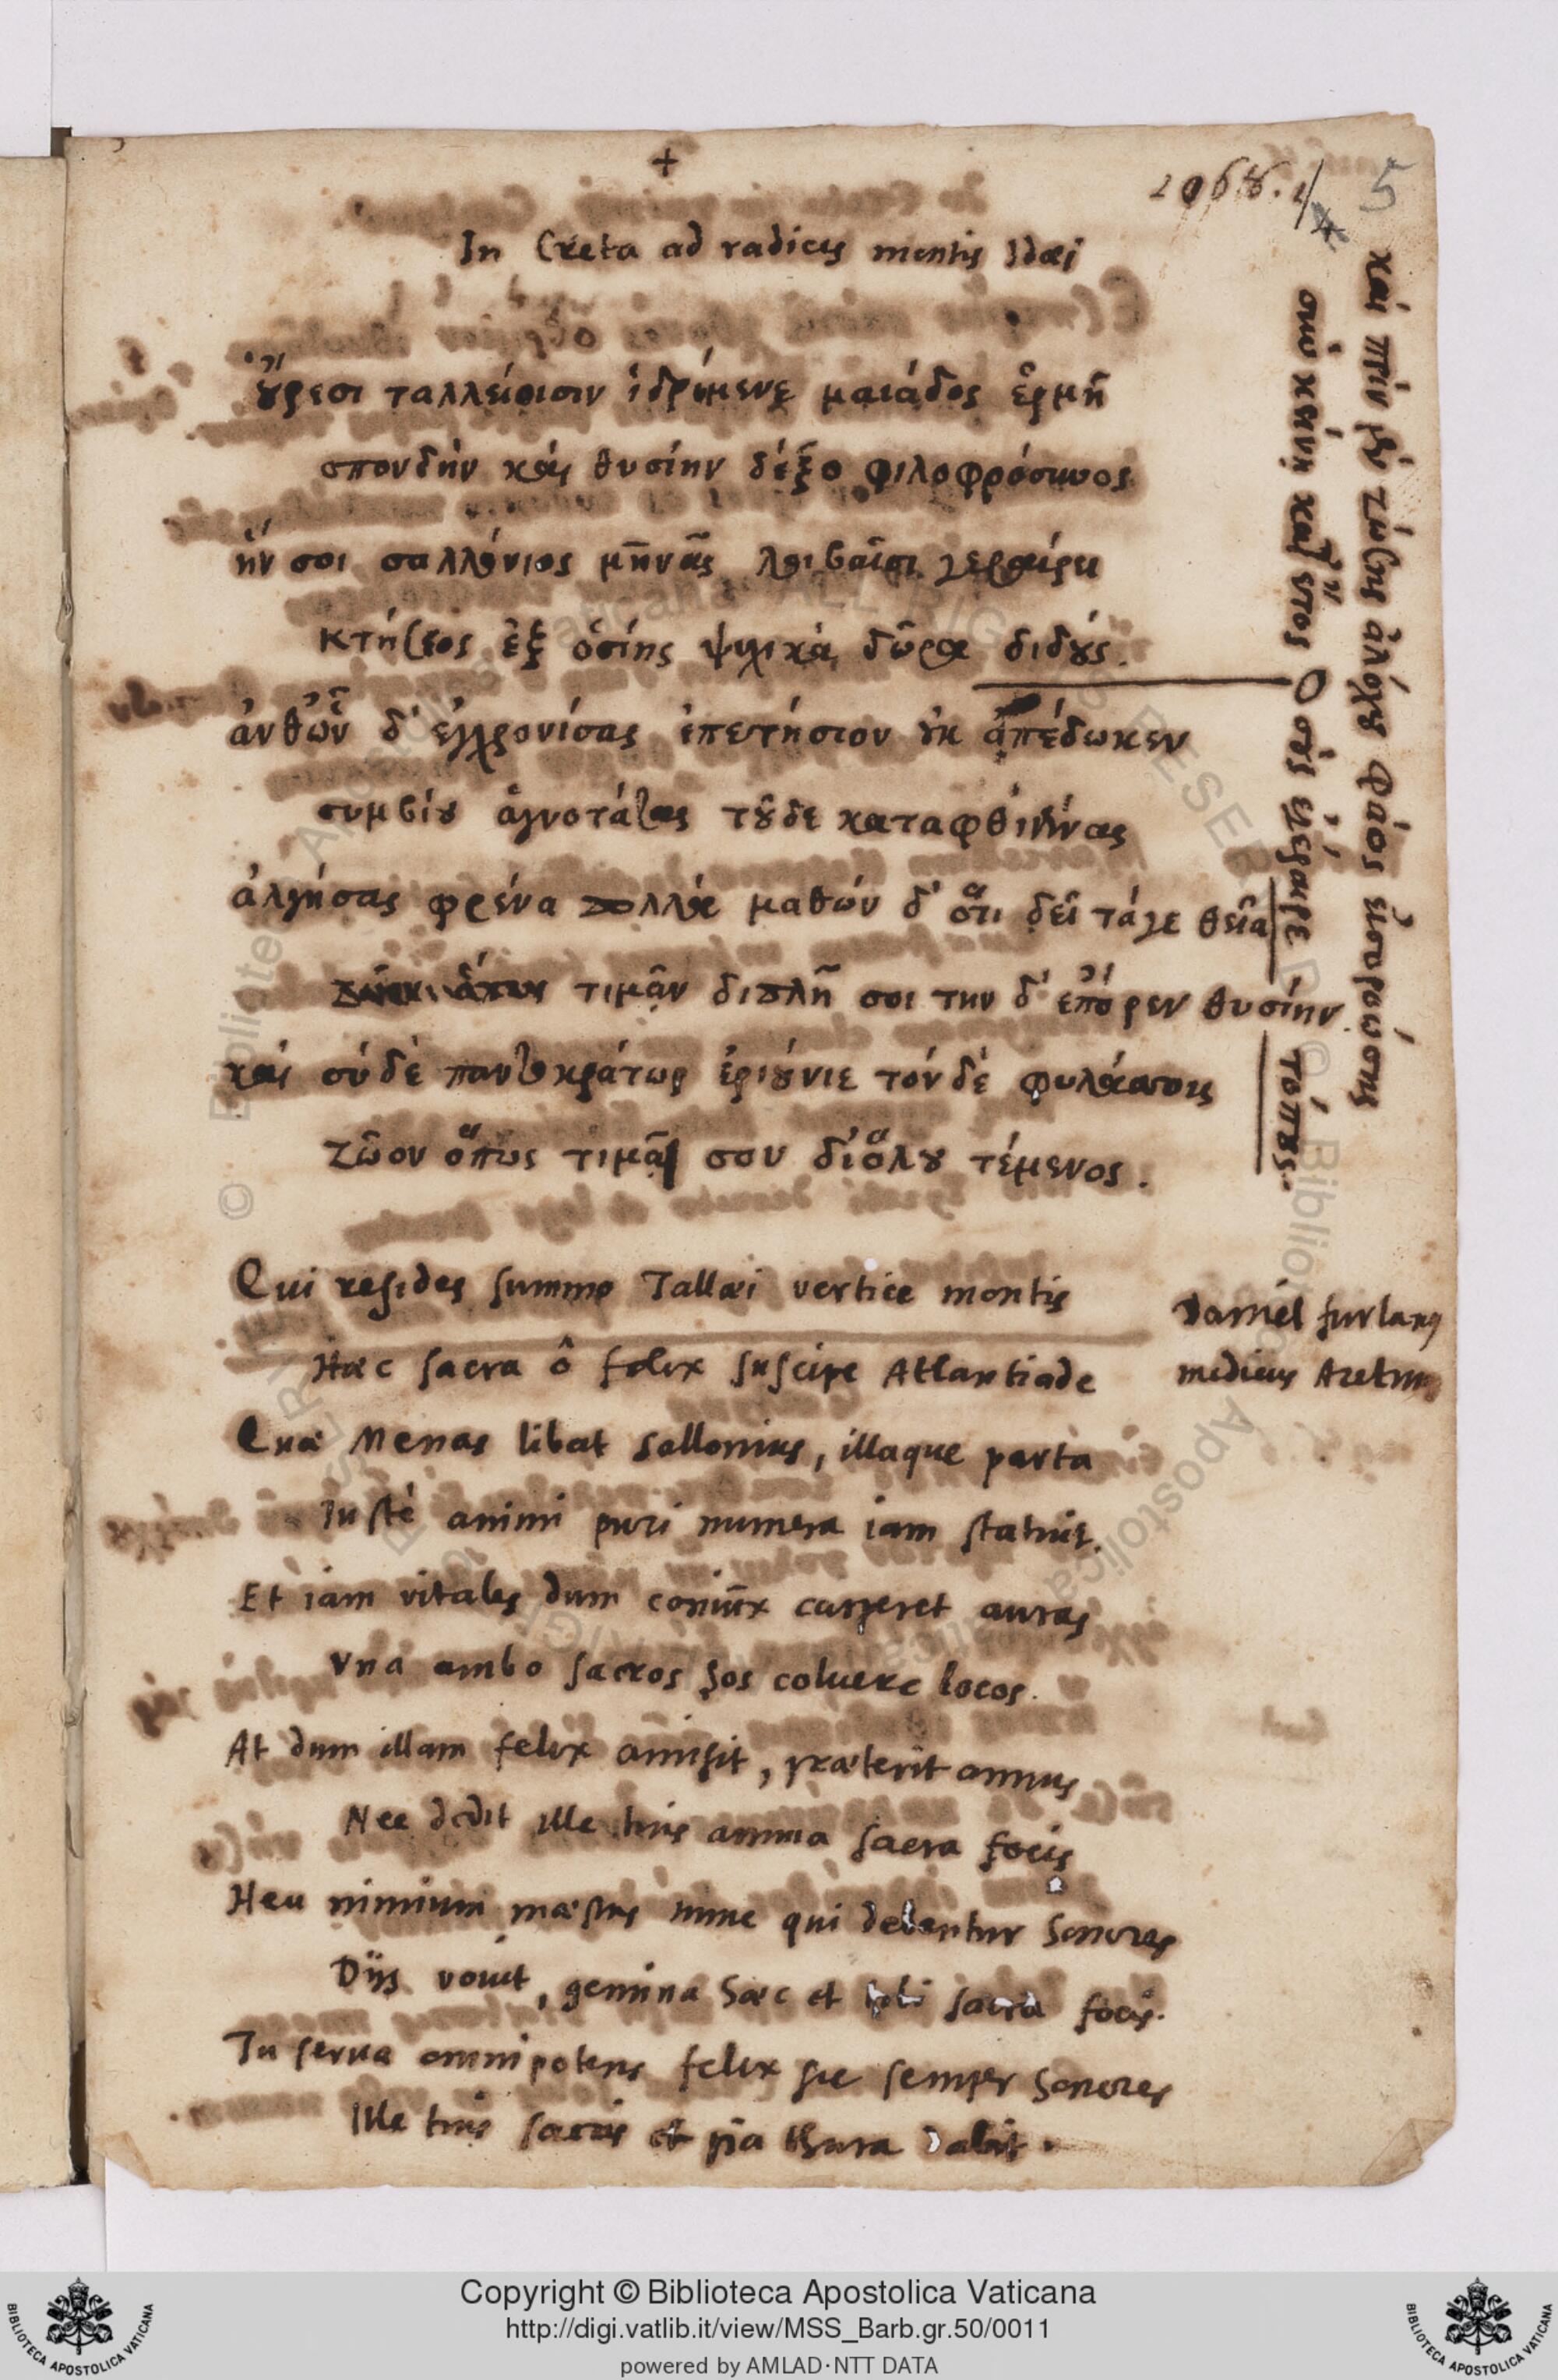 +
In Creta ad radices montis Idæi
5
οὔρεσι ταλλείοισιν ἱδρύμενε μαιάδος ἑρμῆ
σπονδὴν καὶ θυσίην δέξο φιλοφρόσυνος
ἥν σοι σαλλόνιος μηνᾶς λοιβαῖσι γεραίρει
κτήσεος ἐξ ὁσίης ψυχικὰ δῶρα διδούς.
ἀνθ' ὧν δ' ἐγχρονίσας ἐπετήσιον οὐκ ἀπέδωκεν
συμβίου ἁγνοτάτας τοῦδε καταφθιμένας
ἀλγήσας φρένα πολλὰ μαθὼν δ' ὅτι δεῖ τάγε θεῖα
τιμᾶν διπλῆ σοι την δ' ἔπορεν θυσίην.
καὶ σὺ δὲ παντοκράτωρ ἐριούνιε τόνδε φυλάσσοις
ζῶον ὅπως τιμᾷ σου δι' ὅλου τέμενος.
καὶ πρὶν μὲν ζώσης ἀλόχου φάος εἰσορώσης
σὺν κείνῃ κατ' ἔτος σοὺς ἐγέραιρε τόπους.
Qui resides summo Tallæi vertice montis
Hæc sacra ô felix suscipe Atlantiade
Quæ Menas libat sallonius, illaque parta
Iustè animi puri munera iam statuit.
Et iam vitales dum coniux carperet auras
Vna ambo sacros hos coluere locos.
At dum illam felix amisit, præterit annus
Nec dedit ille tuis annua sacra focis
Heu nimium mæstus nunc qui debentur honores
Diis vouit, gemina hæc et tibi sacra focis.
Tu serua omnipotens felix sic semper honores
Ille tuis sacris et pia thura dabit.
Daniel furlanus
medicus Aretinus
Copyright © Biblioteca Apostolica Vaticana
http://digi.vatlib.it/view/MSS_Barb.gr.50/0011
powered by AMLAD·NTT DATA
BIBLIOTECA APOSTOLICA VATICANA
BIBLIOTECA APOSTOLICA VATICANA